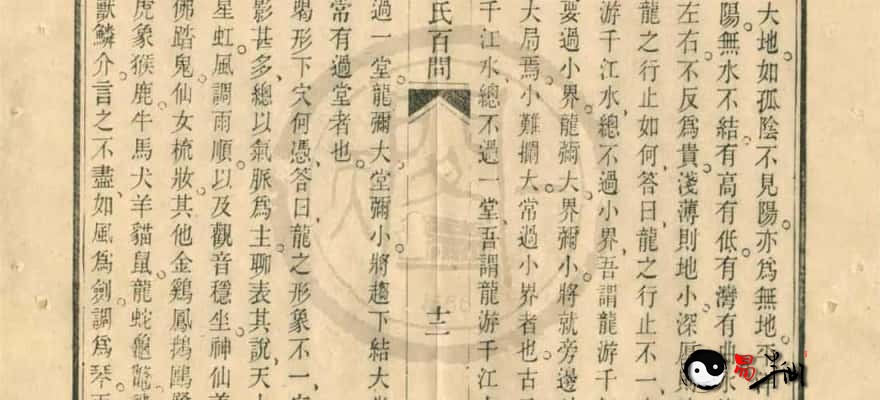 大地如孤陰不見陽亦爲無地
陽無水不結有高有低有灣有曲
左右不反爲貴淺薄則地小深
龍之行止如何答曰龍之行止不一
游千江水總不過小界吾謂龍游千
要過小界龍彌大界彌小將就旁邊
大局焉小難攔大常過小界者也古
千江水總不過一堂吾謂龍游千江
氏百問
十二
過一堂龍彌大堂彌小將趨下結大
常有過堂者也
喝形下穴何憑答曰龍之形象不一
影甚多總以氣脈爲主聊表其說天
星虹風調雨順以及觀音穩坐神仙
佛踏鬼仙女梳妝其他金鷄鳳鵝鷗
虎象猴鹿牛馬犬羊貓鼠龍蛇龜
獸鱗介言之不盡如風爲劍調爲琴